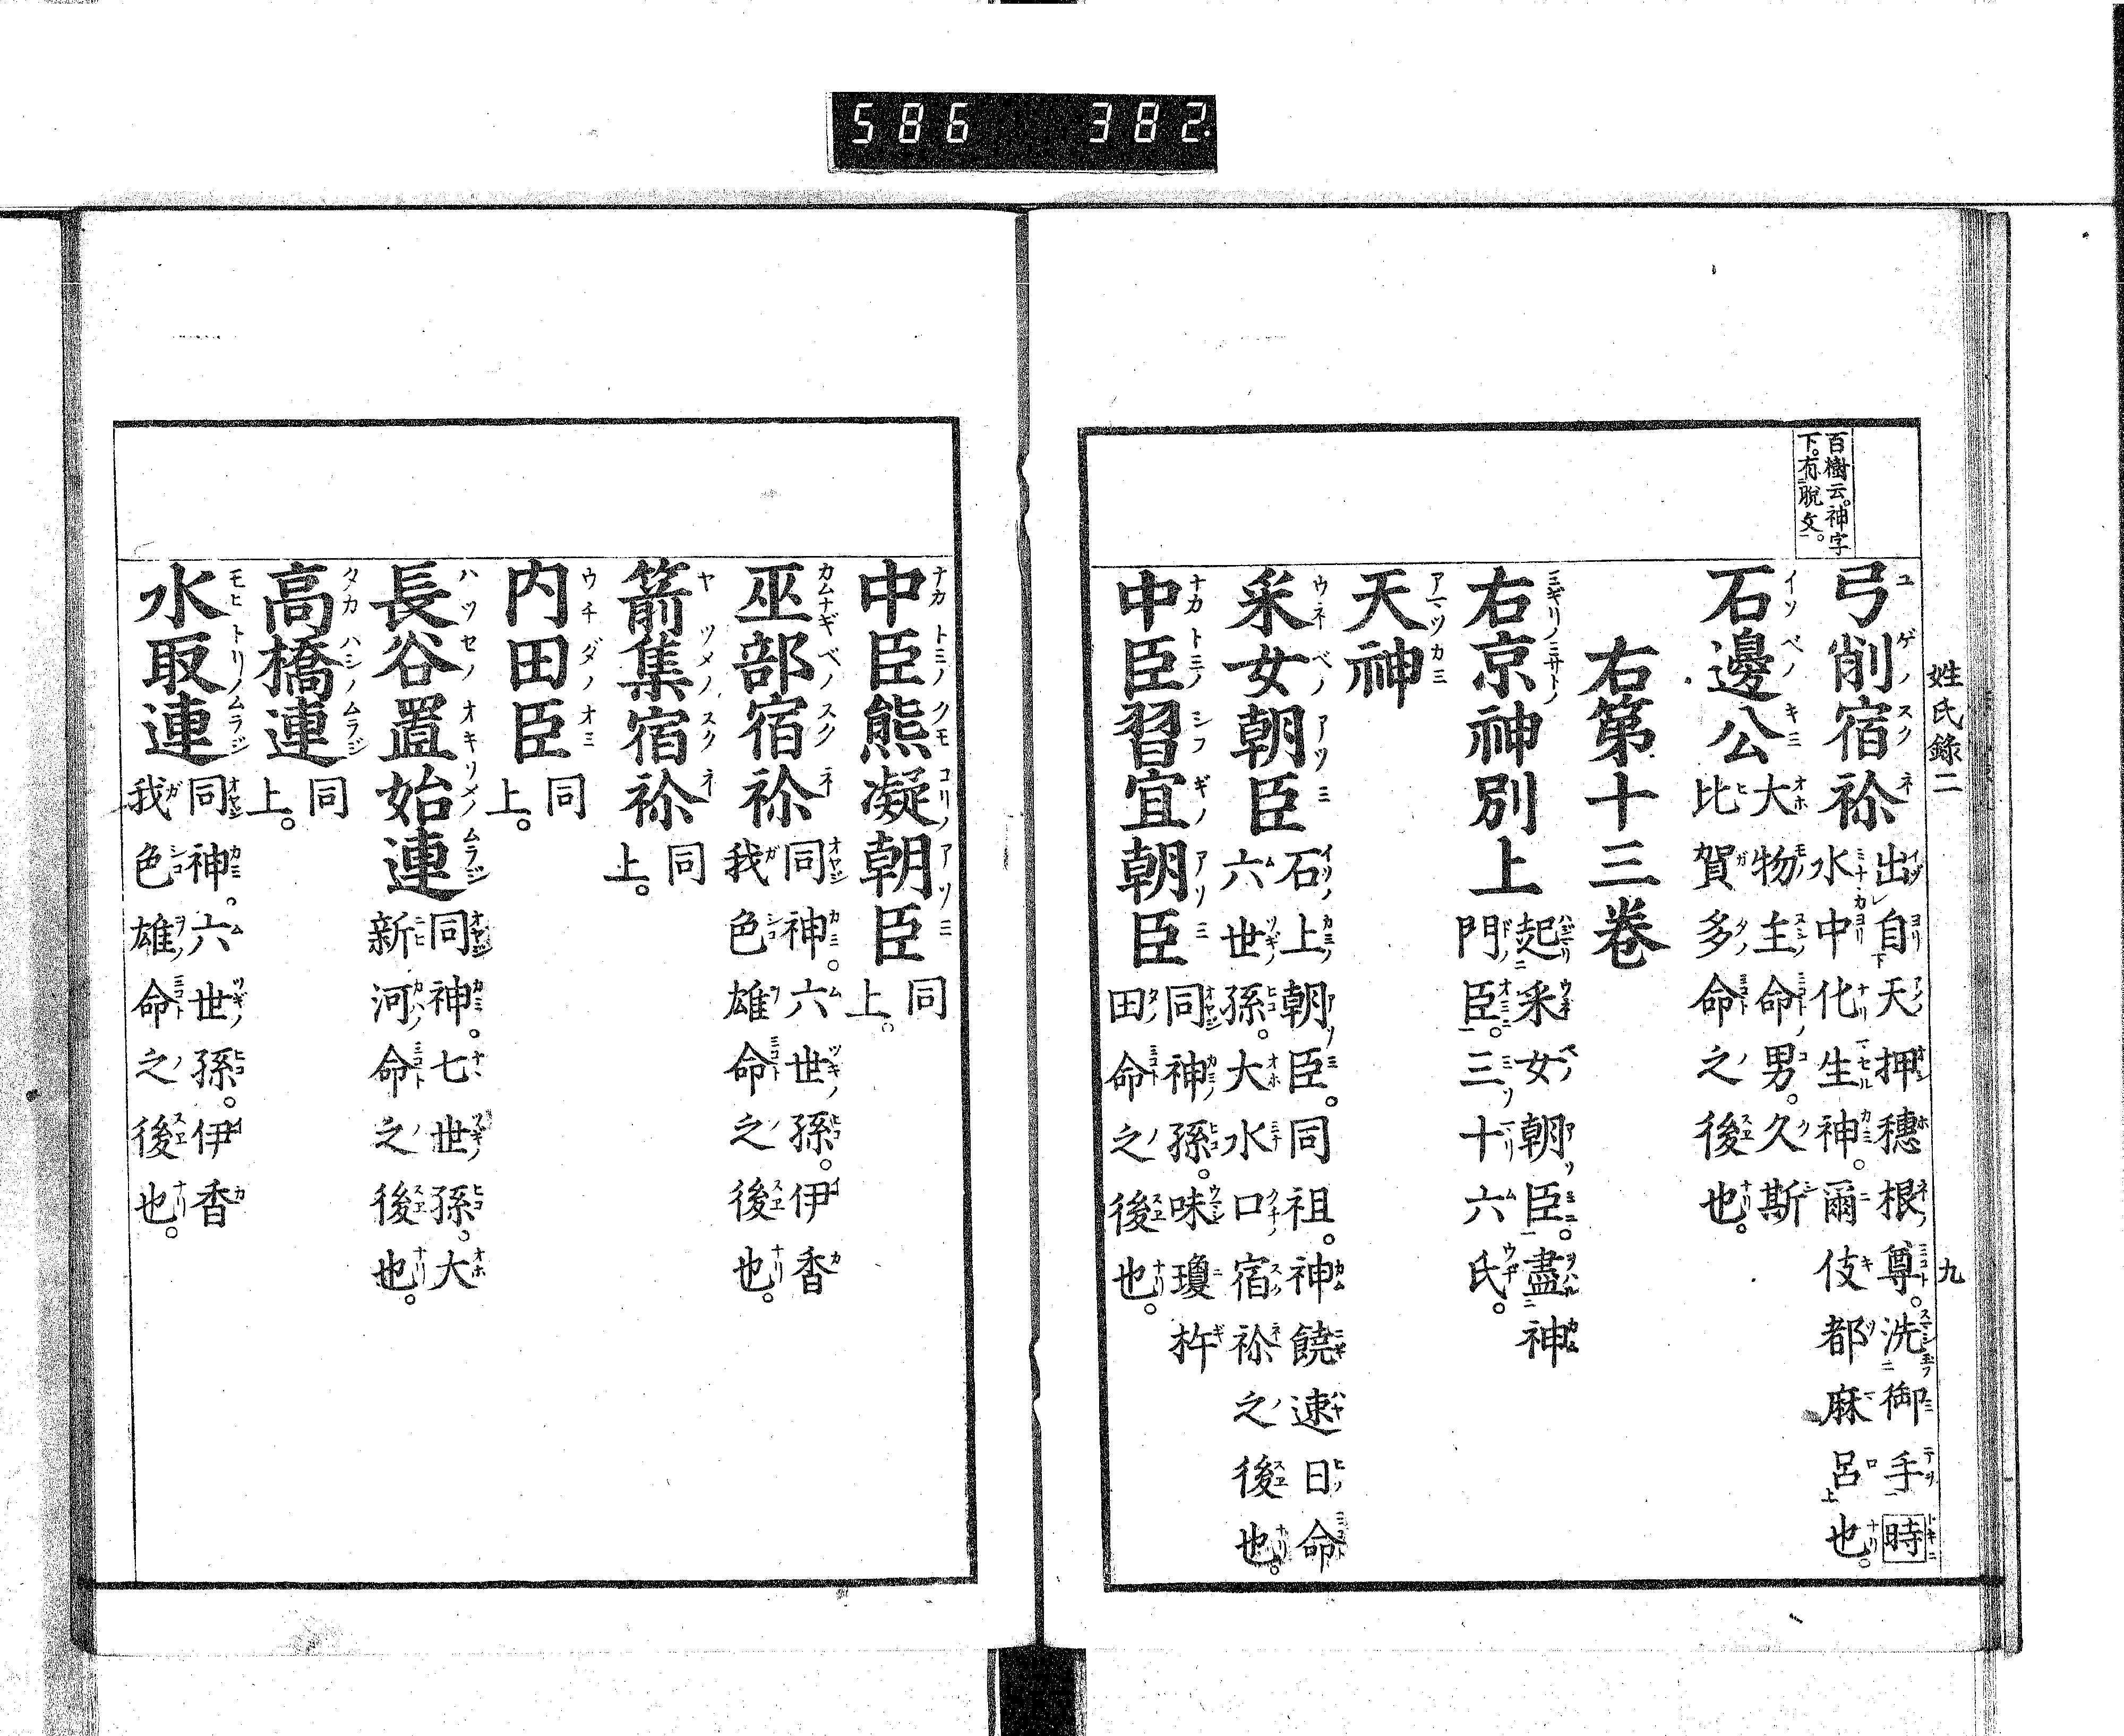 586 382.
姓氏錄二 九
百樹云。神字
下。有脫文。
弓削宿祢 出自天押穗根尊。洗御手時
水中化生神。爾伎都麻呂也。
石邊公 大物主命男。久斯
比賀多命之後也。
右第十三卷
右京神別上 起采女朝臣。盡神
門臣。三十六氏。
天神
采女朝臣 石上朝臣。同祖。神饒速日命
六世孫。大水口宿祢之後也。
中臣習宜朝臣 同神孫。味瓊杵
田命之後也。
中臣熊凝朝臣 同
上。
巫部宿祢 同神。六世孫。伊香
我色雄命之後也。
箭集宿祢 同
上。
内田臣 同
上。
長谷置始連 同神。七世孫。大
新河命之後也。
高橋連 同
上。
水取連 同神。六世孫。伊香
我色雄命之後也。